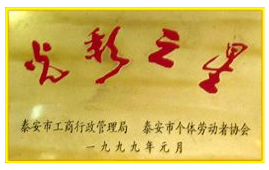 光彩之星
泰安市工商行政管理局 泰安市个体劳动者协会
一九九九年元月